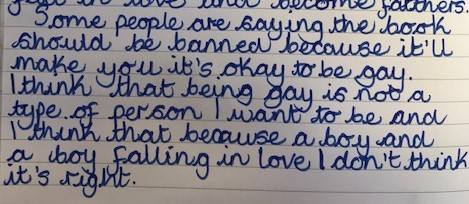 in love and become fatthers.
Some people are saying the book
should be banned because it'll
make you it's okay to be gay.
I think that being gay is not a
type of person I want to be and
I think that because a boy and
a boy falling in love I don't think
it's right.